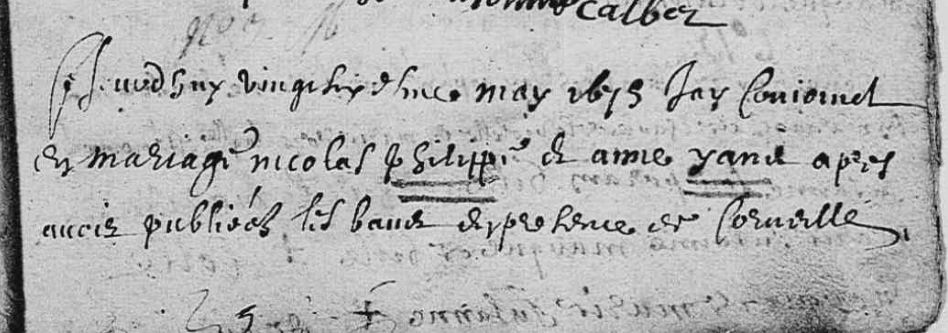 calber
Ce Jourdhuy vingt six dsme may 1675 Jay Conioinct
en mariage nicolas philippe et anne yane apres
avoir publiez les bans en presence de